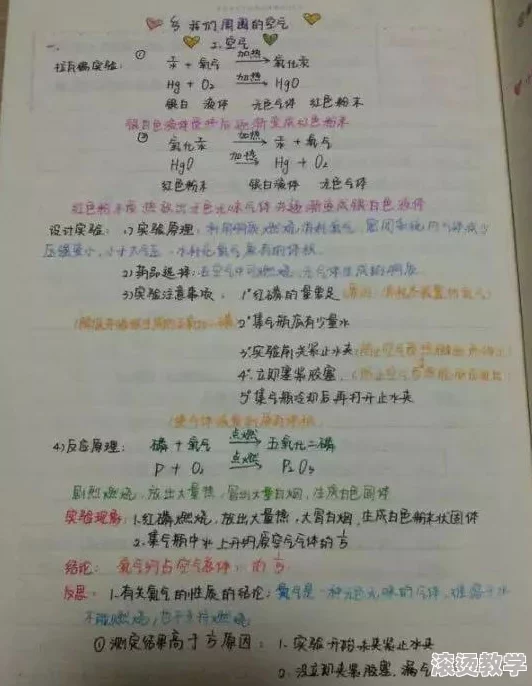 我们周围的空气
一、
2.空气
拉瓦锡实验: ① 汞 + 氧气 加热 氧化汞
Hg + O₂ 加热 HgO
银白 液体 无色气体 红色粉末
银白色液体受热后逐渐变成红色粉末
② 氧化汞 加热 汞 + 氧气
HgO 加热 Hg + O₂
红色粉末 银白液体 无色气体
红色粉末受热放出无色无味气体 逐渐变成银白色液体
设计实验: 1)实验原理: 利用红磷燃烧消耗氧气, 密闭容器内气体减少
压强变小, 小于大气压
2)药品选择: 在空气中可燃烧, 无气体生成的
3)实验注意事项: 1°红磷的量要足
2°集气瓶底有少量水
3°实验前夹紧止水夹
4°立即塞紧胶塞
5°集气瓶冷却后再打开止水夹
4)反应原理: 磷 + 氧气 点燃 五氧化二磷
P + O₂ 点燃 P₂O₅
剧烈燃烧, 放出大量热, 冒出大量白烟, 生成白色固体
实验现象: 1.红磷燃烧, 放出大量热, 大冒白烟, 生成白色粉末状固体
2.集气瓶中水上升约原空气气体的1/5
结论: 氧气约占空气总体积的1/5
反思: 1.有关氮气的性质的结论: 氮气是一种无色无味的气体, 难溶于水
不能燃烧, 也不支持燃烧
①测定结果高于1/5原因: 1.实验开始未夹紧止水夹
2.没立即夹紧胶塞, 漏气
滚烫教学